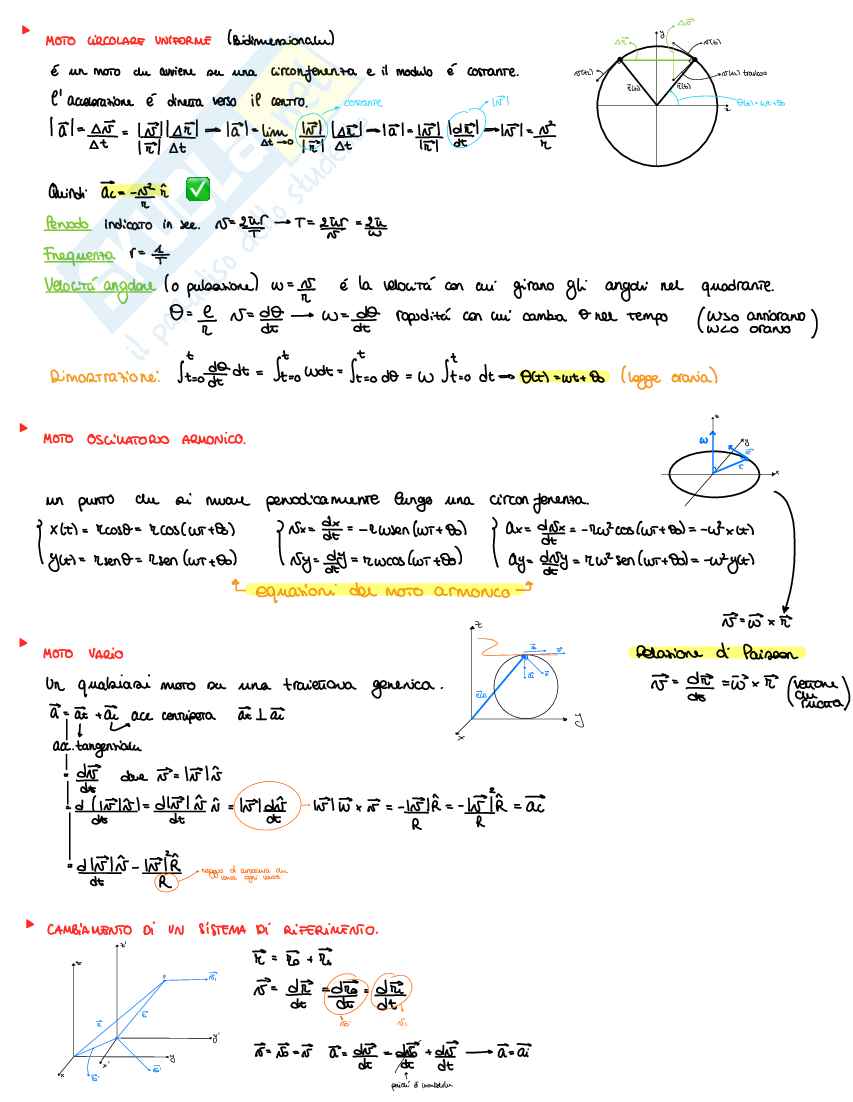 MOTO CIRCOLARE UNIFORME (Bidimensionale)
é un moto che avviene su una circonferenza e il modulo é costante.
l'accelerazione é diretta verso il centro.
|a⃗| = Δv⃗/Δt = |v⃗|/|r⃗| |Δr⃗|/Δt → |a⃗| = lim Δt→0 |v⃗|/|r⃗| |Δr⃗|/Δt → |a⃗| = |v⃗|/|r⃗| |dr⃗|/dt → |v⃗| = v²/r
costante
|v⃗|
Δv⃗
Δr⃗
y
r⃗(t)
x
Quindi a⃗c = -v²/r r̂ ✅
Periodo indicato in sec. v = 2πr/T → T = 2πr/v = 2π/ω
Frequenza r = 1/T
Velocitá angolare (o pulsazione) ω = v/r é la velocitá con cui girano gli angoli nel quadrante.
θ = l/r v = dθ/dt → ω = dθ/dt rapiditá con cui cambia θ nel tempo (ω>0 antiorario
ω<0 orario)
Dimostrazione: ∫t=0^t dθ/dt dt = ∫t=0^t ωdt = ∫t=0^t dθ = ω ∫t=0^t dt → θ(t) = ωt + θ0 (legge oraria)
MOTO OSCILLATORIO ARMONICO.
z
ω
y
v⃗
r
x
un punto che si muove periodicamente lungo una circonferenza.
{ x(t) = rcosθ = rcos(ωt+θ0)
{ y(t) = rsenθ = rsen(ωt+θ0)
{ vx = dx/dt = -rωsen(ωt+θ0)
{ vy = dy/dt = rωcos(ωt+θ0)
{ ax = dvx/dt = -rω²cos(ωt+θ0) = -ω²x(t)
{ ay = dvy/dt = rω²sen(ωt+θ0) = -ω²y(t)
equazioni del moto armonico
v⃗ = ω⃗ × r⃗
MOTO VARIO
Relazione di Poisson
Un qualsiasi moto su una traiettoria generica.
v⃗ = dr⃗/dt = ω⃗ × r⃗
z
y
x
a⃗ = a⃗t + a⃗i acc centripeta a⃗t ⊥ a⃗i
acc. tangenziale
= dv⃗/dt dove v⃗ = |v⃗|v̂
= d(|v⃗|v̂)/dt = d|v⃗|/dt v̂ v̂ = |v⃗| dv̂/dt → |v⃗| ω⃗ × v⃗ = -|v⃗|/R R̂ = -|v⃗|²/R R̂ = a⃗c
= d|v⃗|/dt v̂ - |v⃗|²/R R̂
raggio di curvatura che
CAMBIAMENTO DI UN SISTEMA DI RIFERIMENTO.
r⃗ = r⃗0 + r⃗i
v⃗ = dr⃗/dt = dr⃗0/dt = dr⃗i/dt
v⃗0
v⃗i
v⃗ = v⃗0 = v⃗ a⃗ = dv⃗/dt = dv⃗0/dt + dv⃗/dt → a⃗ = a⃗i
z
z'
y'
y
x
x'
SKUOLA.net
il paradiso dello studente